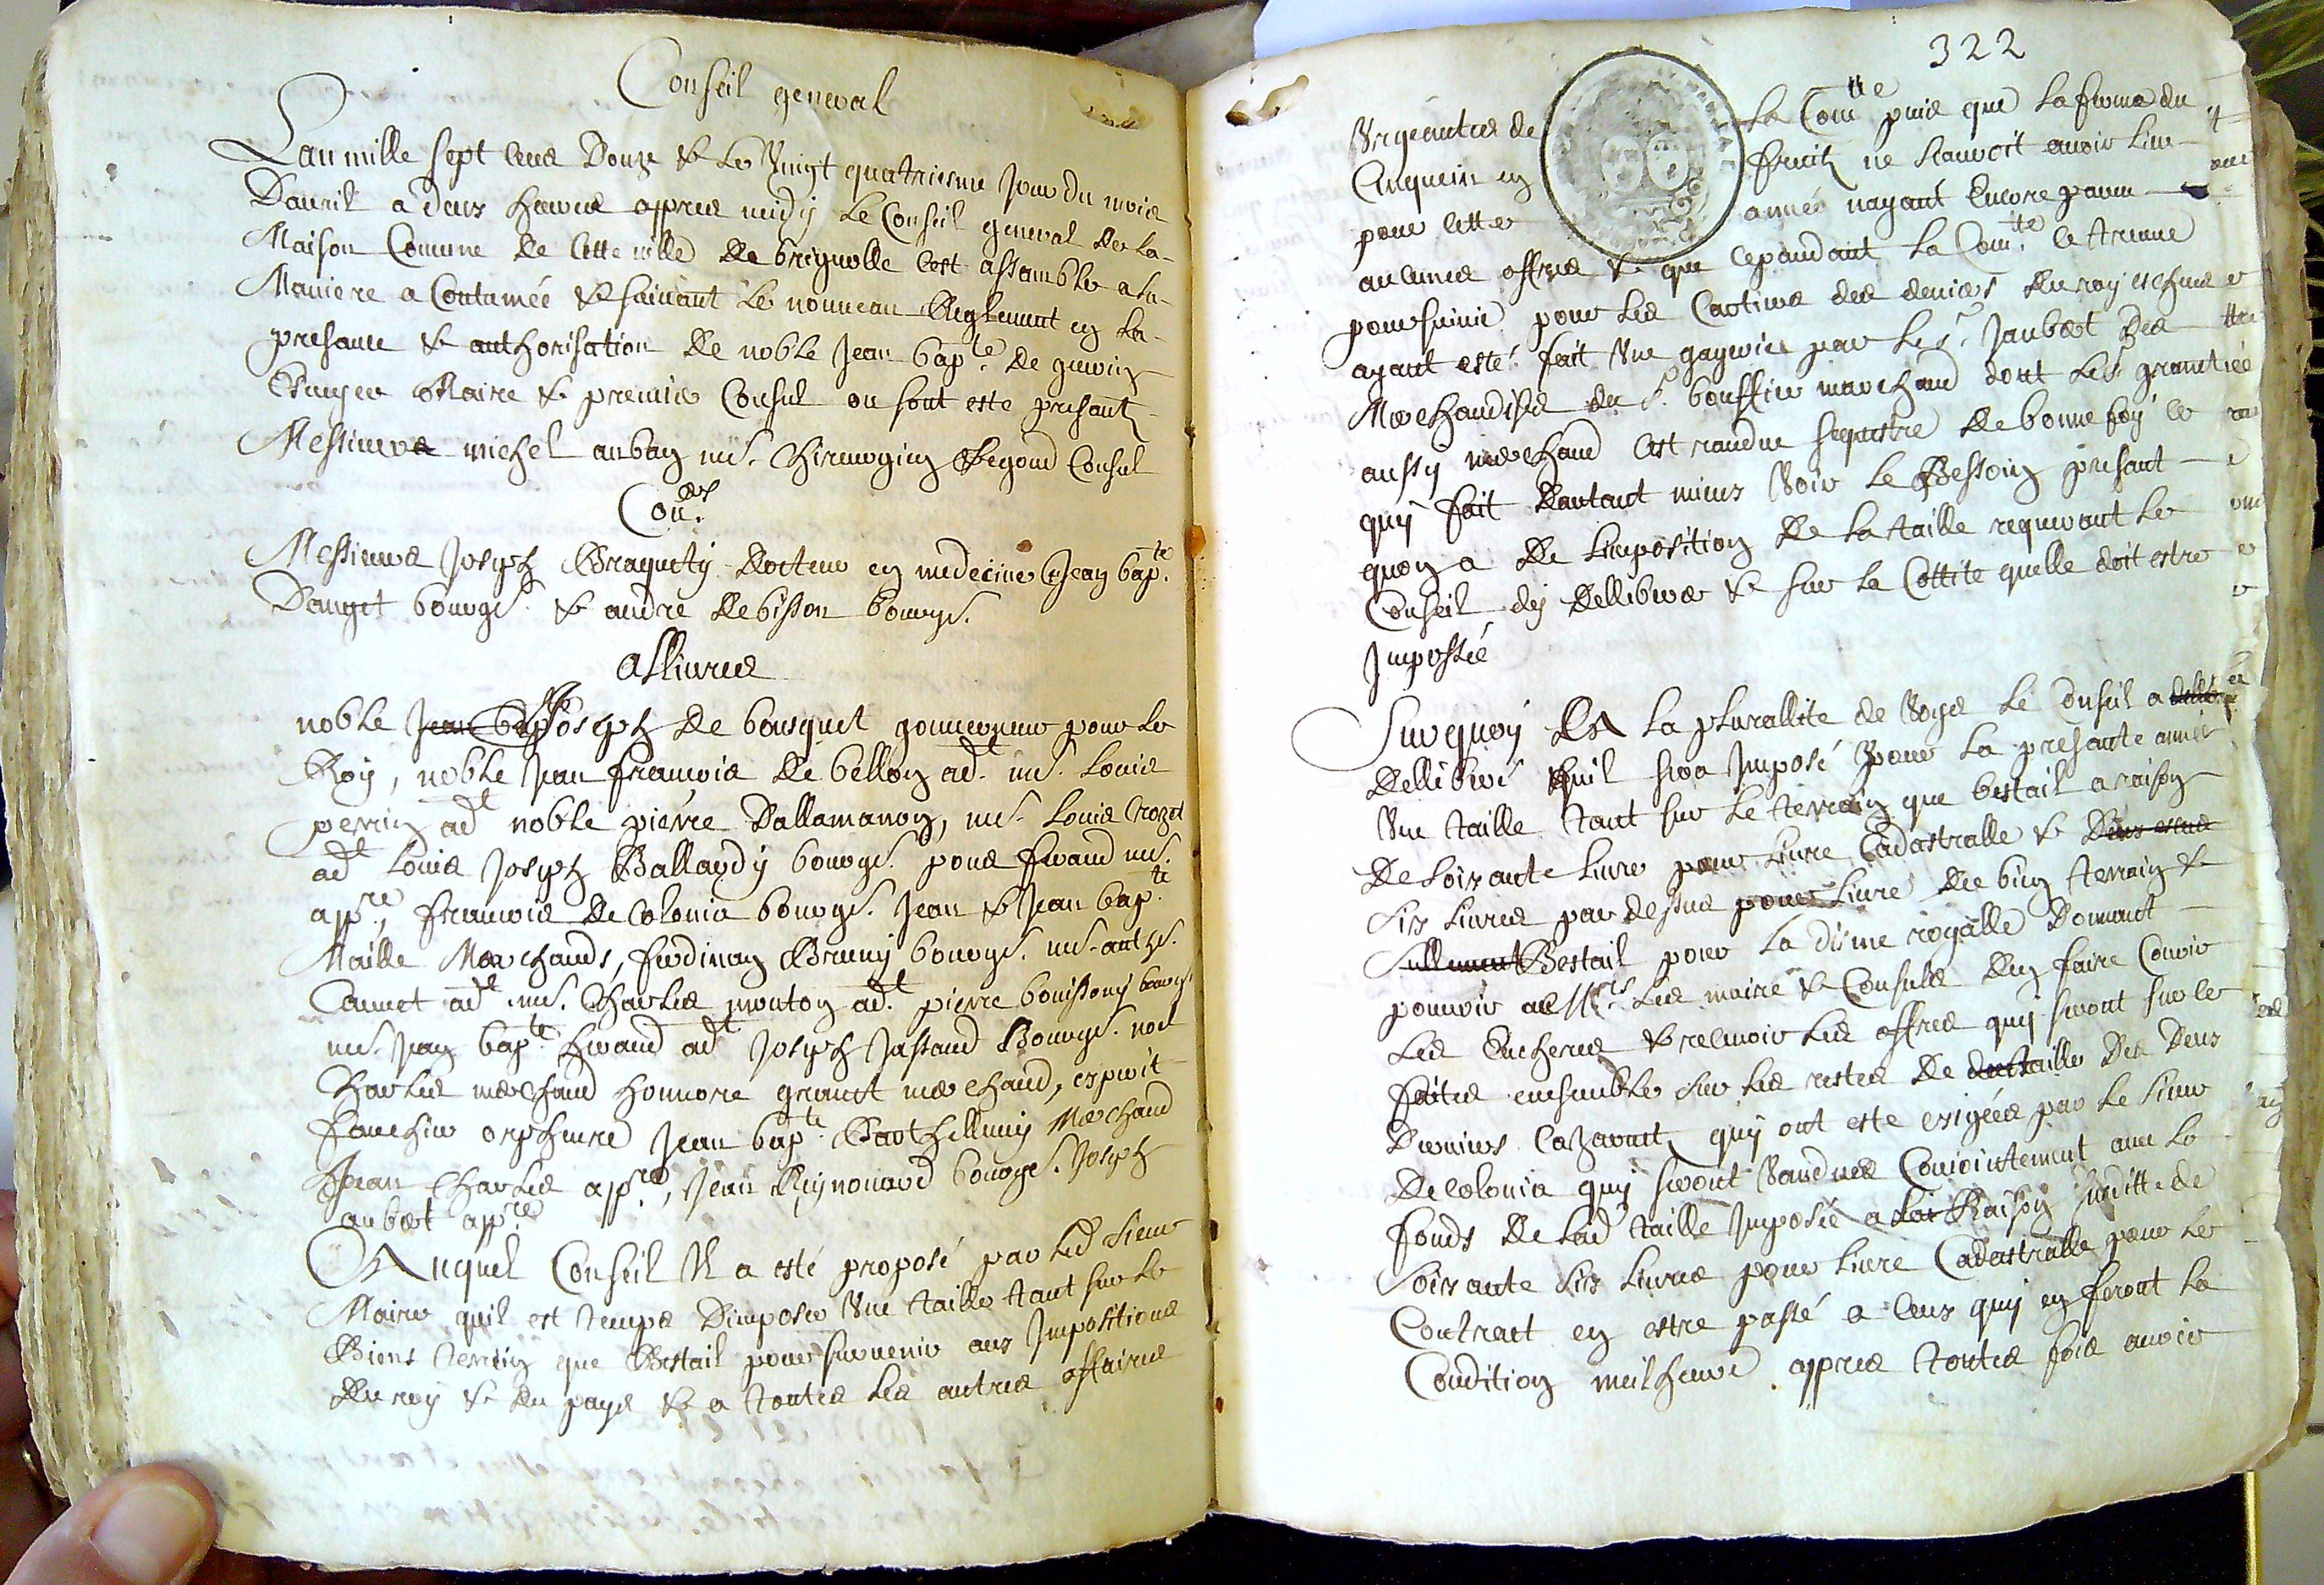 Conseil general
Lan mille sept cens Douze & le Vingt quatriesme Jour du mois
Dauril a deux heures appres midy le Conseil general de la
Maison Comune de cette ville de brignolle cest assamble a la
Maniere a Coutumée & suiuant le nouueau Reglement en la
presance & authorisation de noble Jean bap.te de
Escuyer Maire & premier Consul ou sont este presants
Messieurs michel auban me. Chirurgien segond Consul
Con.ers
Messieurs Joseph Braquety Docteur en medecine Jean bap.te
Dauget bourgs. & andre debisson bourgs.
allivres
noble Jean bap Joseph de bousquet gouuerneur pour le
Roy, noble Jean francois de bellon ad.t me. Louis
perrin ad.t noble pierre Dallamanon, me. Louis
ad.t Louis Joseph Ballardy bourgs. pons feraud me.
app.re, francois de Colonia bourgs. Jean & Jean bap.te
Maille Marchands, ferdinan Bruny bourgs. me. anth.
ad.t me. Charles mouton ad.t pierre bouissony bourgs.
me. Jean bap.te feraud ad.t Joseph Jassaud Bourgs. noel
Charles marchand honnore granet marchand, esprit
fauchier orpheure Jean bap.te Barthellemy Marchand
Jean Charles app.re, Jean Reynouard bourgs. Joseph
aubert app.re
Auquel Conseil Il a esté proposé par led sieur
Maire quil est temps Dimposer Vne taille tant sur le
Biens terrein que Bestail pour suruenir aux Impositions
du roy & du pays & a toutes les autres affaires
322
Vrgeantes de la Com.tte puis que la ferme du
Cinquein en fruits ne sauroit auoir lieu
pour cette année nayant Encore pareu
aucunes offres & que cepandant la Com.tte ce treuue
poursuiuie pour les Cartiers des deniers du roy escheus
ayant este fait Vne gagerie par le sr. Jaubert des
Marchandises du sr. bouffier marchand dont le sr. granet
aussy marchand cest randue sequestre de bonne foy ce
quy fait dautant mieux Voir le Bessoin presant
quon a de Limposition de la taille requerant le
Conseil dy dellibrer & sur la Cottite quelle doit estre
Impossée
Surquoy a la plurallite de Voys le Conseil a
dellibere quil sera Imposé pour la presante année
Vne taille tant sur le terrain que bestail a raison
De soixante liure pour Liure Cadastralle & Deux escus
six liures par dessus pour Liure de bien terrein &
sullement Bestail pour la disme royalle Donnant
pouuoir a Mrs. les maire & Consuls den faire Courir
Les Encheres & receuoir les offres quy seront sur ce
faites ensamble sur les restes de la taille des deux
Derniers Cazanet quy ont este exigées par le sieur
De colonia quy seront Vandues Conjointement aue la
fonds de lad taille Imposée a Raison susditte de
soixante six liures pour liure Cadastralle pour le
Contract en estre passé a ceux quy en feront la
Condition meilheure appres toutes fois auoir